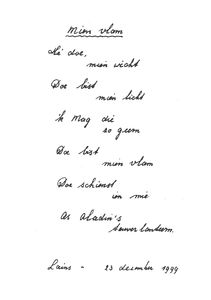 Mien vlam
Hé doe,
mien wicht
Doe bist
mien licht
'k Mag die
zo geern
Doe bist
mien vlam
Doe schienst
in mie
As Aladin's
toverlanteern.
- 23 desember 1999